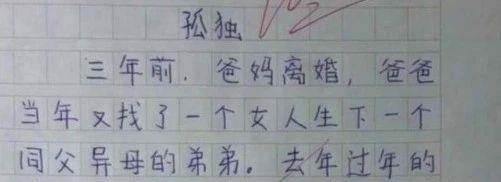 孤独
三年前，爸妈离婚，爸爸
当年又找了一个女人生下一个
同父异母的弟弟。去年过年的